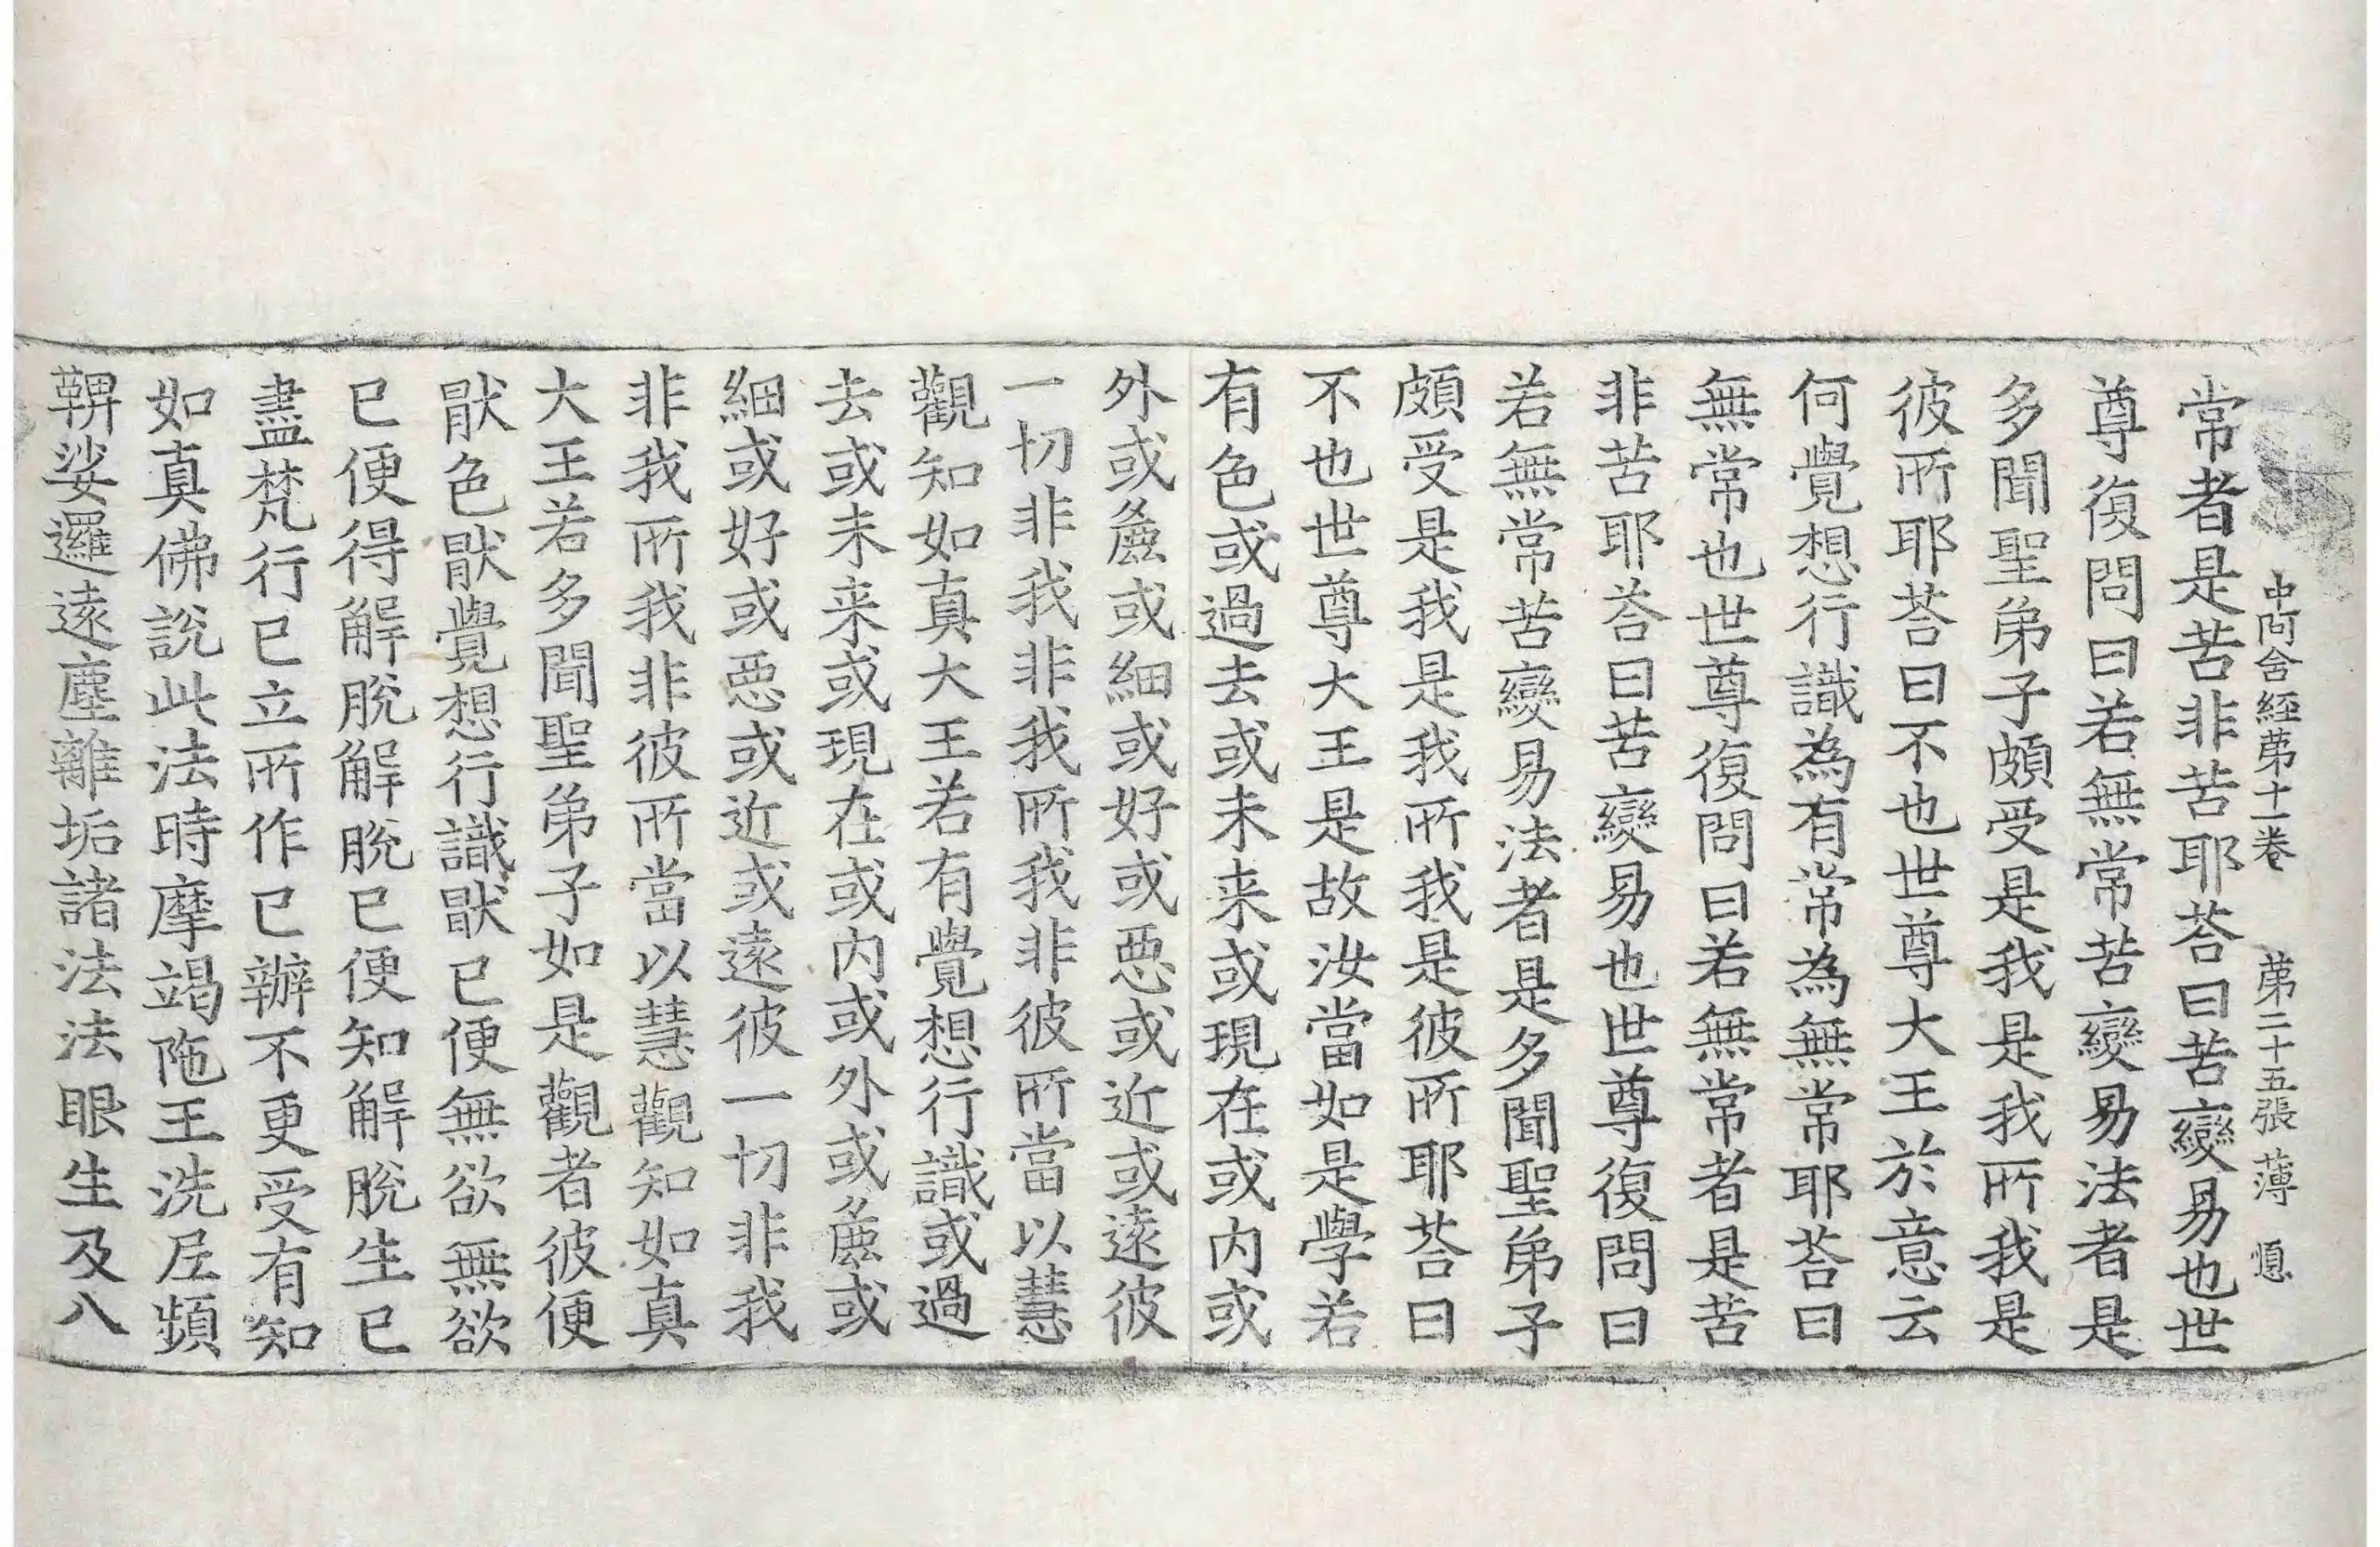 中阿含経苐十一卷 苐二十五張 薄 㥧
常者是苦非苦耶荅曰苦變易也世
尊復問曰若無常苦變易法者是
多聞聖弟子頗受是我是我所我是
彼所耶荅曰不也世尊大王於意云
何覺想行識為有常為無常耶荅曰
無常也世尊復問曰若無常者是苦
非苦耶荅曰苦變易也世尊復問曰
若無常苦變易法者是多聞聖弟子
頗受是我是我所我是彼所耶荅曰
不也世尊大王是故汝當如是學若
有色或過去或未来或現在或内或
外或麁或細或好或惡或近或遠彼
一切非我非我所我非彼所當以慧
觀知如真大王若有覺想行識或過
去或未来或現在或内或外或麁或
細或好或惡或近或遠彼一切非我
非我所我非彼所當以慧觀知如真
大王若多聞聖弟子如是觀者彼便
猒色猒覺想行識猒已便無欲無欲
已便得解脫解脫已便知解脫生已
盡梵行已立所作已辦不更受有知
如真佛說此法時摩竭陁王洗尼頻
鞞娑邏遠塵離垢諸法法眼生及八